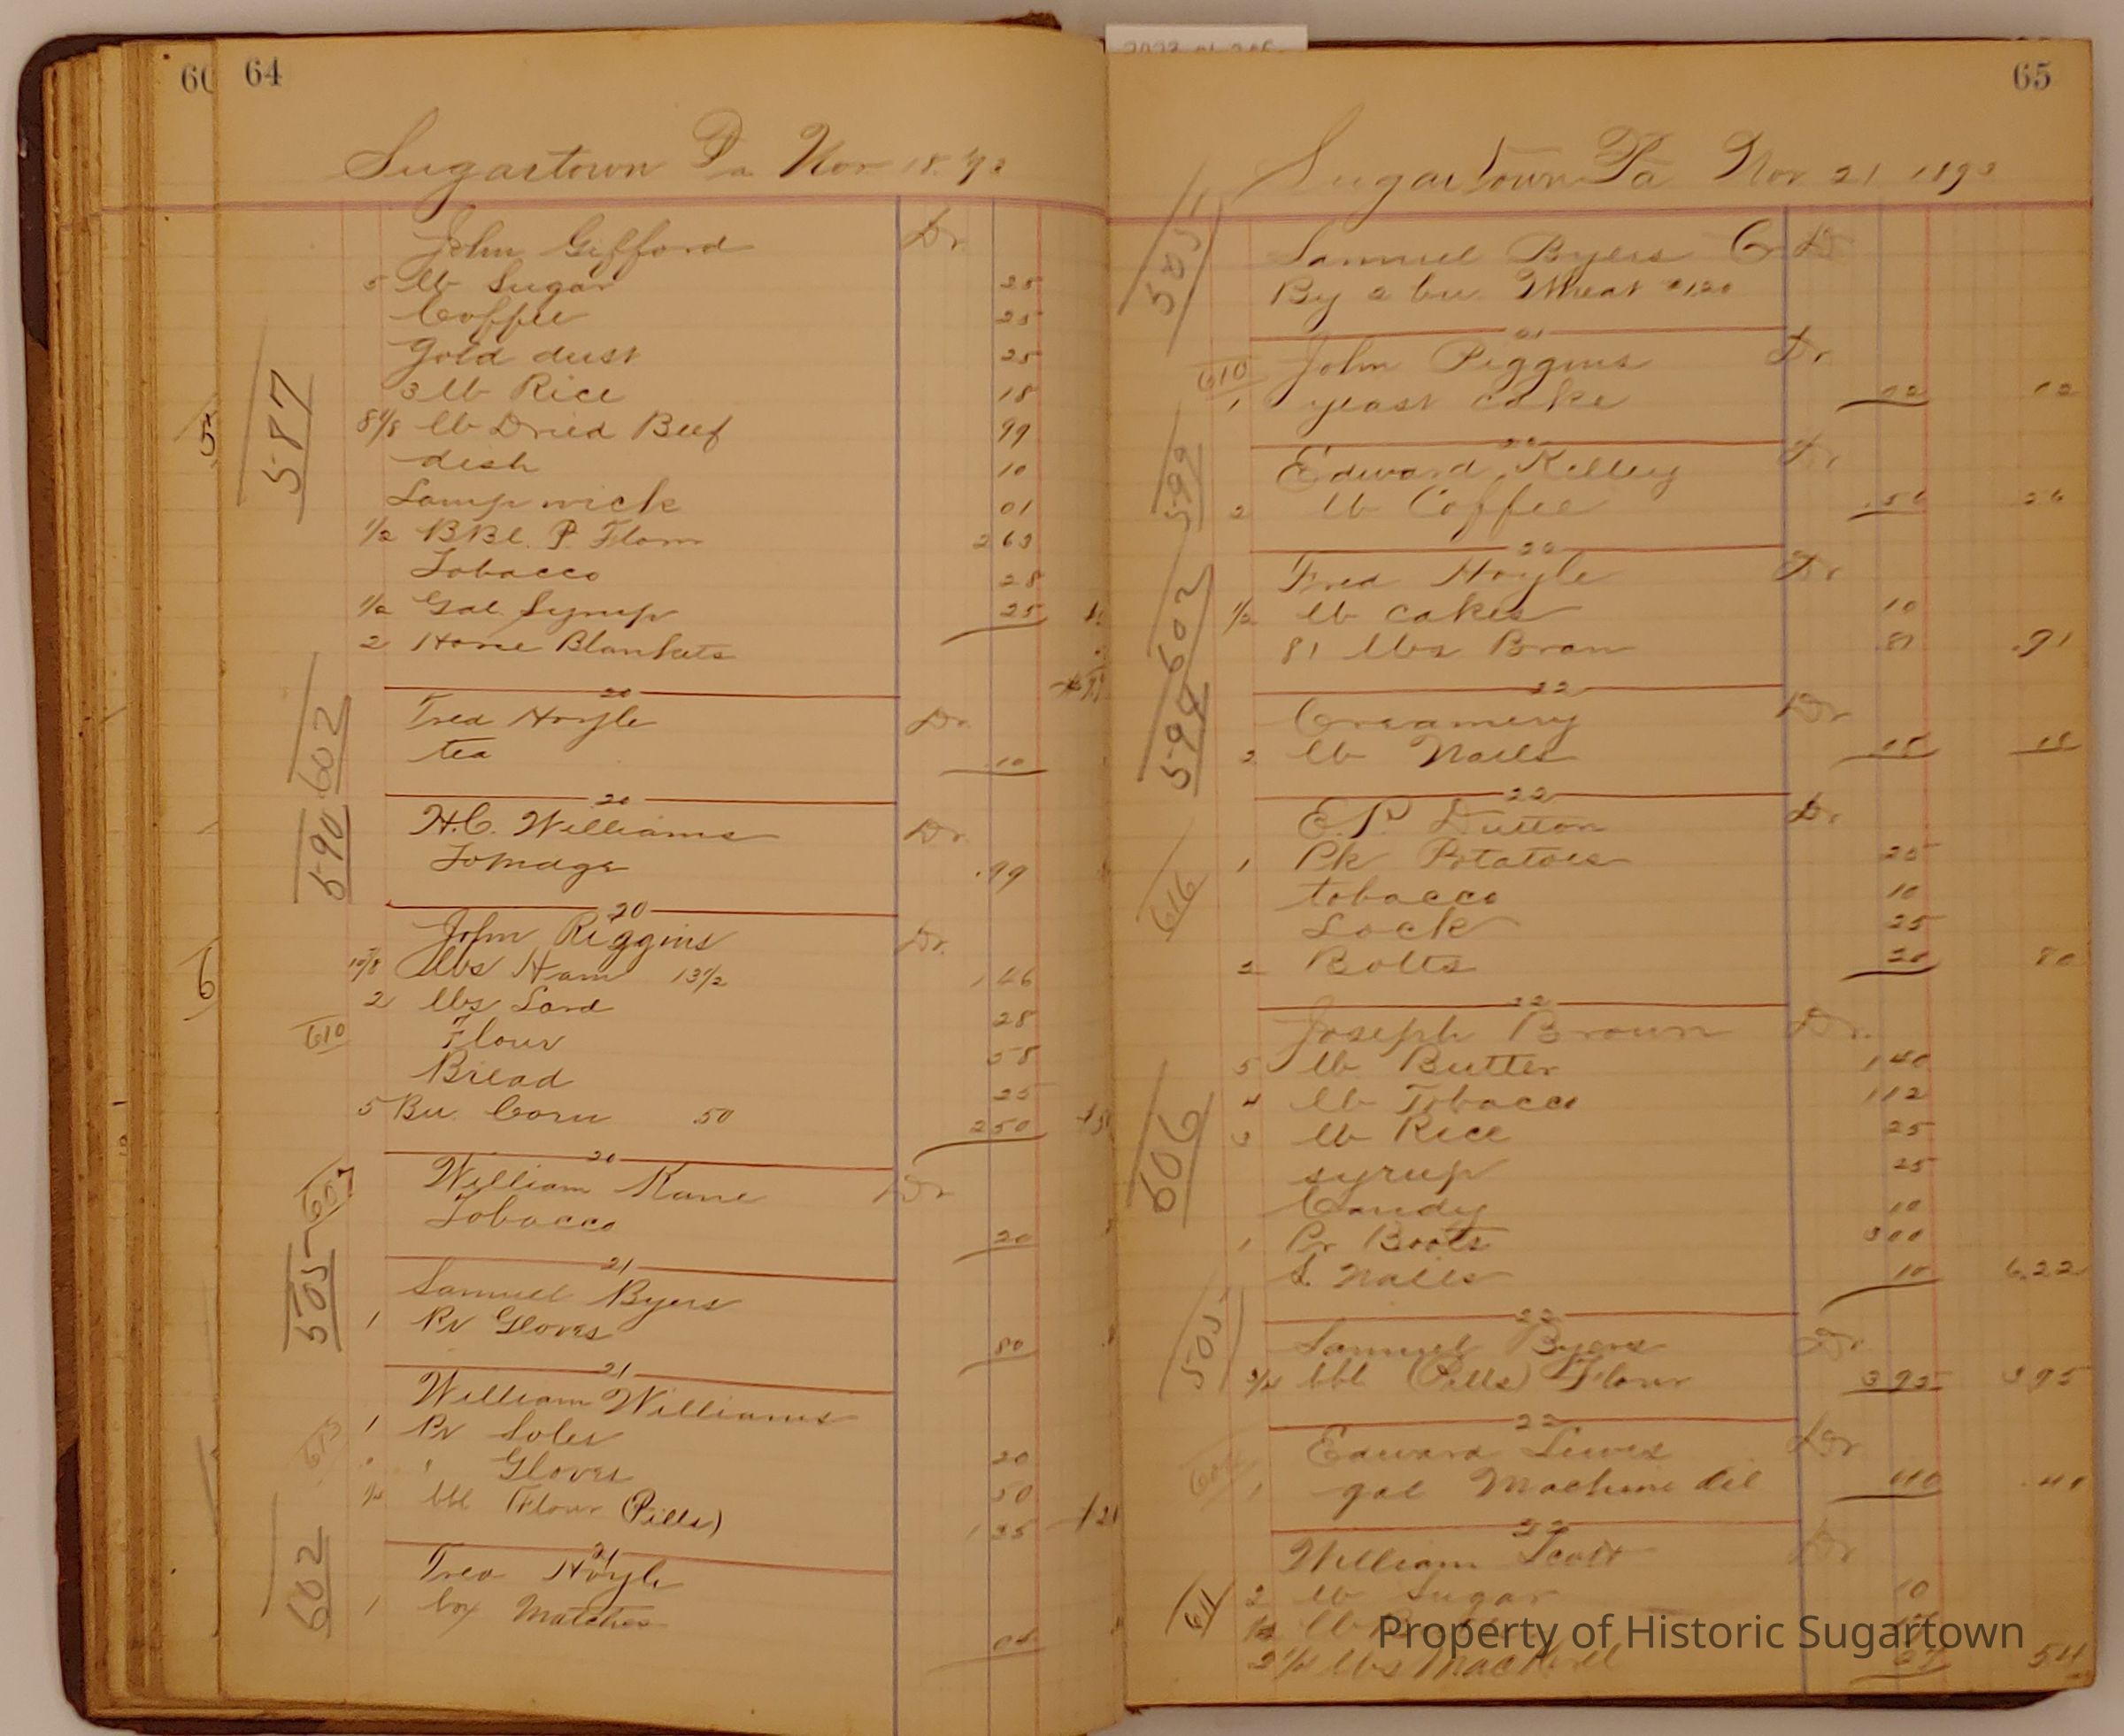 60 64
Sugartown Pa Nov 18. 93
John Gifford Dr.
5 lb Sugar 25
Coffee 25
Gold dust 25
3 lb Rice 18
lb Dried Beef 99
587
dish 10
Lamp wick 01
1/2 BBl. P. Flour 2 63
Tobacco 28
1/2 Gal. Syrup 25
2 Horse Blankets
20
Fred Hoyle Dr.
602
tea 10
20
H.C. Williams Dr.
590
.99
20
John Riggins Dr.
lbs Ham 13 1/2 1 46
2 lbs Lard 28
610
Flour 58
Bread 25
5 Bu. Corn .50 2 50
20
William Kane Dr
607
Tobacco 20
21
Samuel Byers
505
1 Pr Gloves 80
21
William Williams
1 Pr Soles 20
" " Gloves 50
1/4 bbl Flour (Pills) 1 35
21
Fred Hoyle
602
1 box Matches
65
Sugartown Pa Nov 21 1893
505
Samuel Byers Cr
By 2 bu. Wheat 1.20
21
John Riggins Dr.
610
1 yeast cake 02 02
22
Edward Kelley Dr.
599
2 lb Coffee
22
Fred Hoyle Dr.
602
1/2 lb Cakes 10
81 lbs Bran 81 .91
22
Creamery Dr
594
2 lb Nails
22
E.P. Dutton Dr.
1 Pk Potatoes 25
616
tobacco 10
Lock 25
2 Bolts 20 80
22
Joseph Brown Dr.
5 lb Butter 1 40
4 lb Tobacco 1 12
3 lb Rice 25
606
syrup 25
Candy 10
1 Pr Boots 3 00
S. Nails 10 6.22
22
Samuel Byers Dr.
505
3/4 bbl (Pills) Flour 3 95 3 95
22
Edward Lewis Dr
1 gal Machine Oil 40 .40
22
William Scott Dr
611
2 lb Sugar 10
lb
2 1/4 lbs Mackerel 27 54
Property of Historic Sugartown